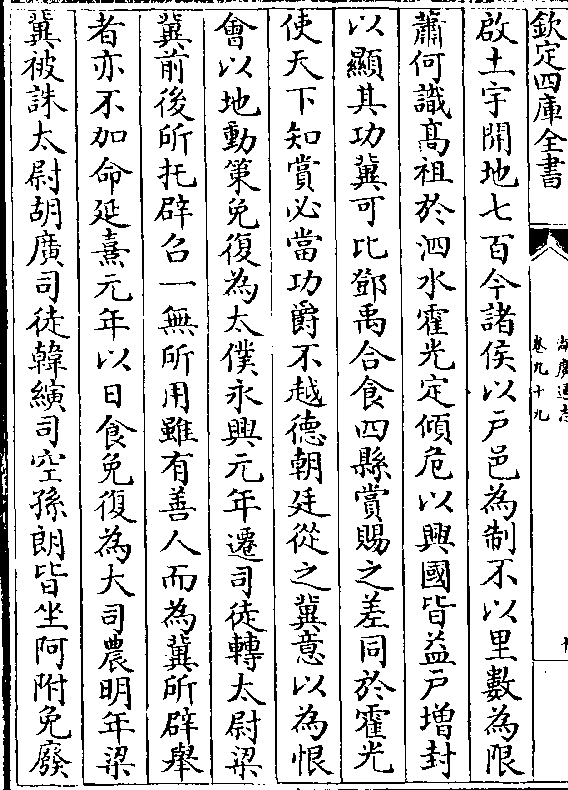 欽定四庫全書
湖廣通志
卷九十九
啟土宇開地七百今諸侯以戸邑為制不以里數為限
蕭何識髙祖於泗水霍光定傾危以興國皆益戸增封
以顯其功冀可比鄧禹合食四縣賞賜之差同於霍光
使天下知賞必當功爵不越德朝廷從之冀意以為恨
會以地動策免復為太僕永興元年遷司徒轉太尉梁
冀前後所托辟召一無所用雖有善人而為冀所辟舉
者亦不加命延熹元年以日食免復為大司農明年梁
冀被誅太尉胡廣司徒韓縯司空孫朗皆坐阿附免廢